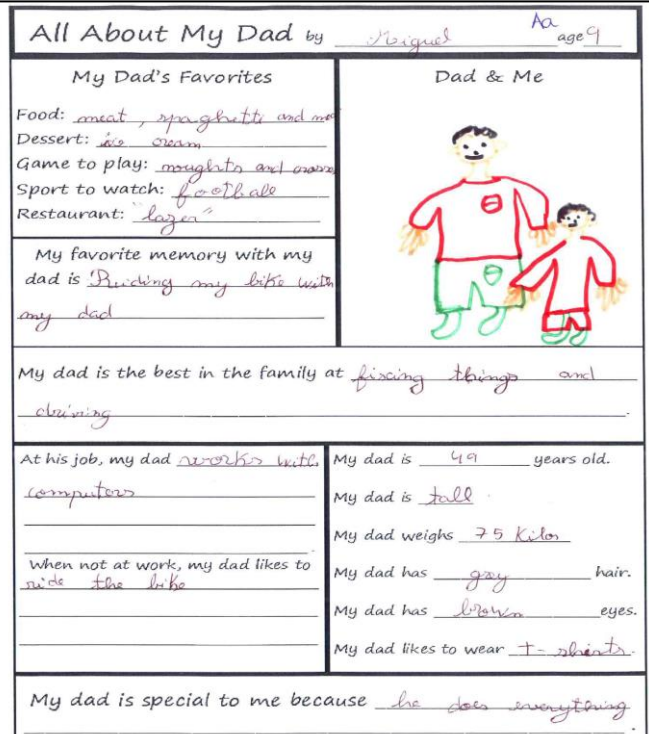 All About My Dad by Miguel Aa age 9
My Dad's Favorites
Food: meat, spaghetti and
Dessert: ice cream
Game to play: noughts and
Sport to watch: football
Restaurant: "lazer"
My favorite memory with my
dad is Ruiding my bike with
my dad
Dad & Me
My dad is the best in the family at fixing things and
driving.
At his job, my dad works with
computors
.
When not at work, my dad likes to
ride the bike
My dad is 49 years old.
My dad is tall.
My dad weighs 75 Kilos
My dad has grey hair.
My dad has brown eyes.
My dad likes to wear t-shirts.
My dad is special to me because he does everything
.